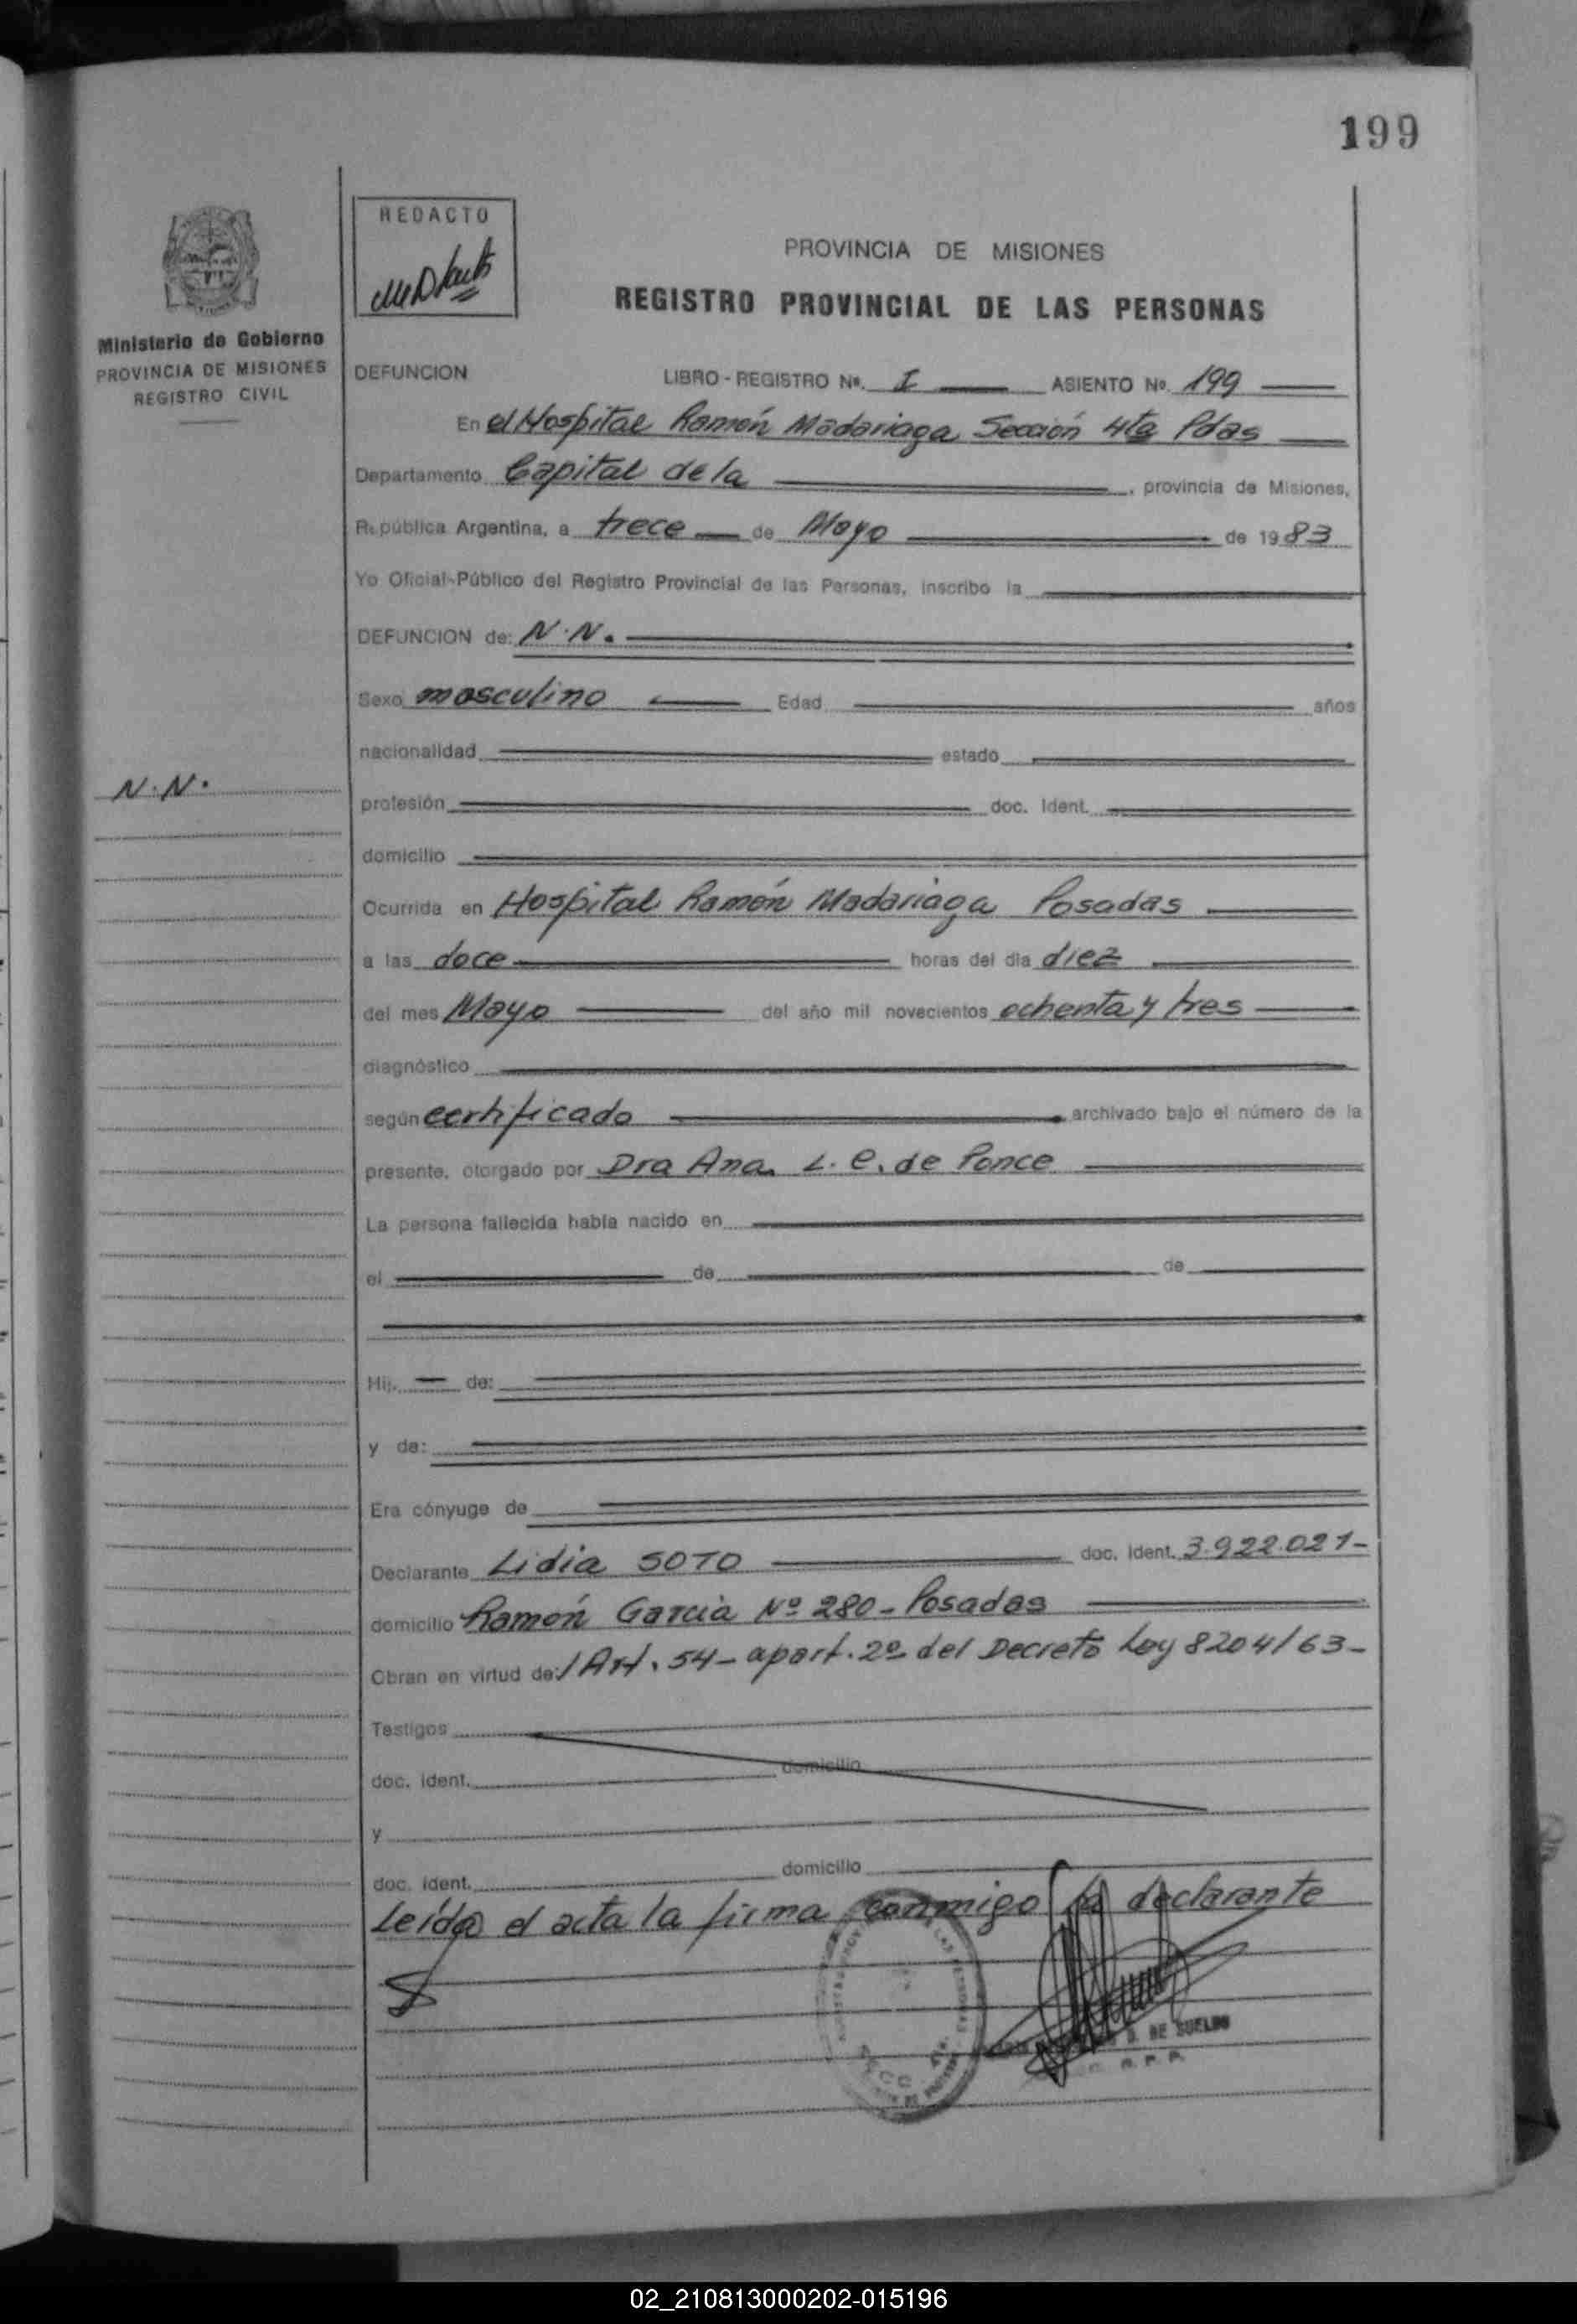 199
REDACTO
PROVINCIA DE MISIONES
REGISTRO PROVINCIAL DE LAS PERSONAS
Ministerio de Gobierno
PROVINCIA DE MISIONES
REGISTRO CIVIL
DEFUNCION LIBRO - REGISTRO Nº. I ASIENTO Nº. 199
En el Hospital Ramón Madariaga Sección 4ta Pdas
Departamento Capital de la , provincia de Misiones,
República Argentina, a trece de Mayo de 1983
Yo Oficial-Público del Registro Provincial de las Personas, inscribo la
DEFUNCION de: N.N.
Sexo masculino Edad años
nacionalidad estado
N.N.
profesión doc. ident.
domicilio
Ocurrida en Hospital Ramón Madariaga Posadas
a las doce horas del día diez
del mes Mayo del año mil novecientos ochenta y tres
diagnóstico
según certificado archivado bajo el número de la
presente, otorgado por Dra Ana L. C. de Ponce
La persona fallecida había nacido en
el de de
Hij. de:
y de:
Era cónyuge de
Declarante Lidia SOTO doc. ident. 3.922.021-
domicilio Ramón García Nº 280 - Posadas
Obran en virtud de: Art. 54 - apart. 2º del Decreto Ley 8204/63-
Testigos
doc. ident. domicilio
y
doc. ident. domicilio
Leída el acta la firma conmigo la declarante
D. DE SUELDO
02_210813000202-015196